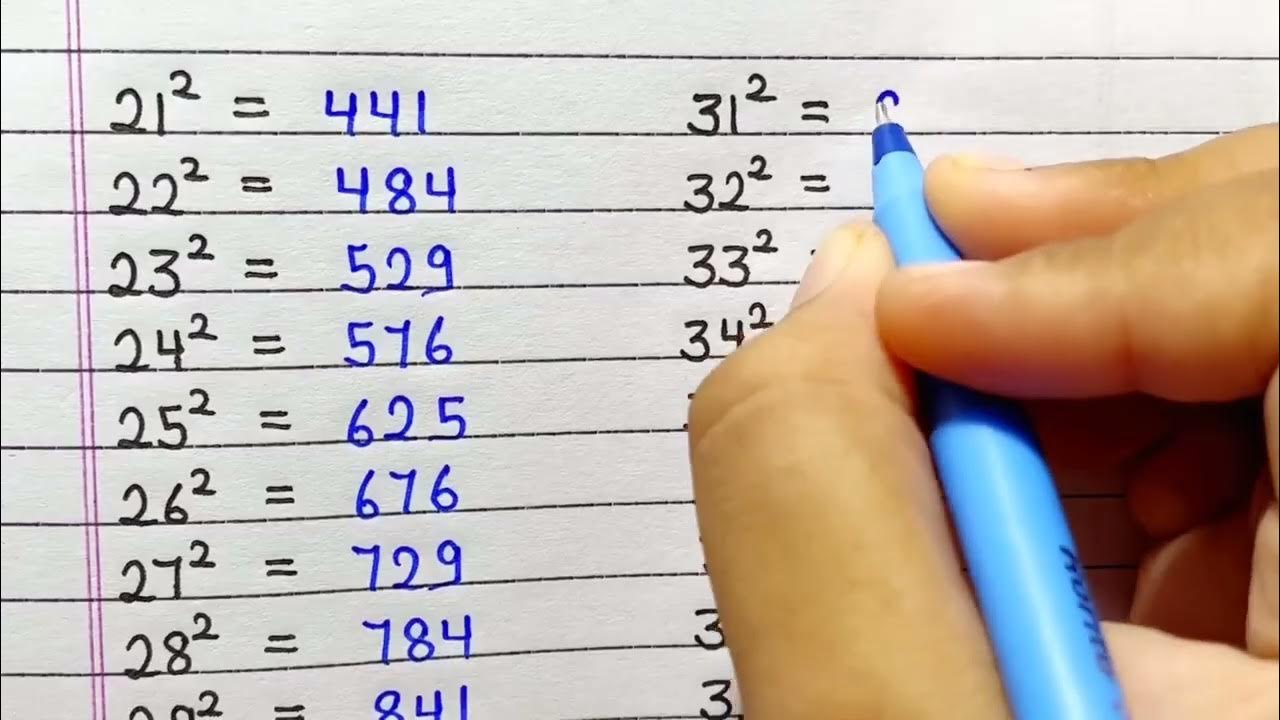 21² = 441
22² = 484
23² = 529
24² = 576
25² = 625
26² = 676
27² = 729
28² = 784
29² = 841
31² =
32² =
33²
34²
3
3